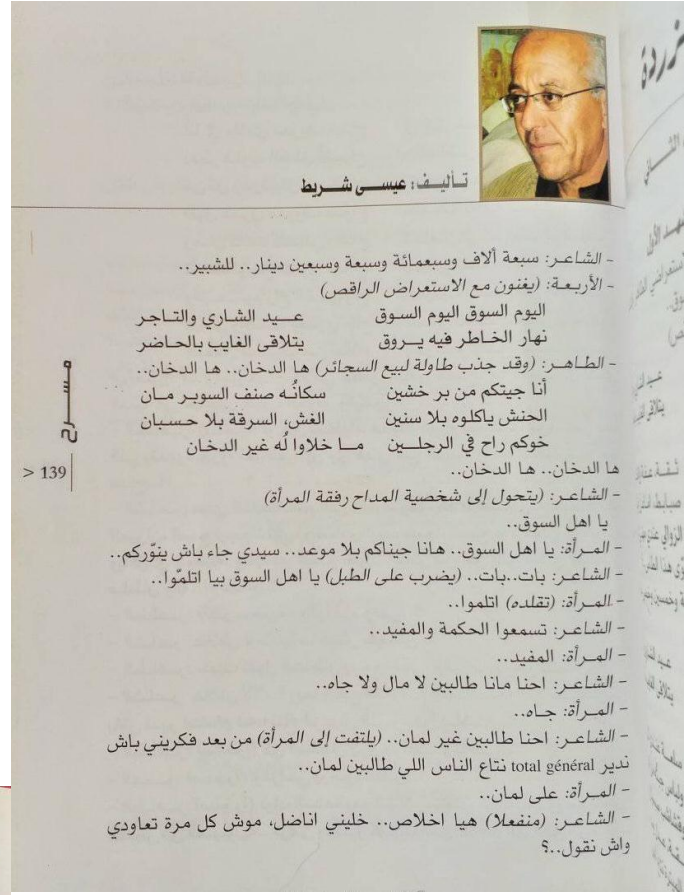 تأليف: عيسى شريط
- الشاعر: سبعة ألاف وسبعمائة وسبعة وسبعين دينار.. للشبير..
- الأربعة: (يغنون مع الاستعراض الراقص)
اليوم السوق اليوم السوق عيد الشاري والتاجر
نهار الخاطر فيه يروق يتلاقى الغايب بالحاضر
- الطاهر: (وقد جذب طاولة لبيع السجائر) ها الدخان.. ها الدخان..
أنا جيتكم من بر خشين سكانُه صنف السوبر مان
الحنش ياكلوه بلا سنين الغش، السرقة بلا حسبان
خوكم راح في الرجلين ما خلاوا لُه غير الدخان
ها الدخان.. ها الدخان..
- الشاعر: (يتحول إلى شخصية المداح رفقة المرأة)
يا اهل السوق..
- المرأة: يا اهل السوق.. هانا جيناكم بلا موعد.. سيدي جاء باش ينوّركم..
- الشاعر: بات..بات.. (يضرب على الطبل) يا اهل السوق بيا اتلمّوا..
- المرأة: (تقلده) اتلموا..
- الشاعر: تسمعوا الحكمة والمفيد..
- المرأة: المفيد..
- الشاعر: احنا مانا طالبين لا مال ولا جاه..
- المرأة: جاه..
- الشاعر: احنا طالبين غير لمان.. (يلتفت إلى المرأة) من بعد فكريني باش
ندير total général نتاع الناس اللي طالبين لمان..
- المرأة: على لمان..
- الشاعر: (منفعلا) هيا اخلاص.. خليني اناضل، موش كل مرة تعاودي
واش نقول..؟
مسرح
139 >